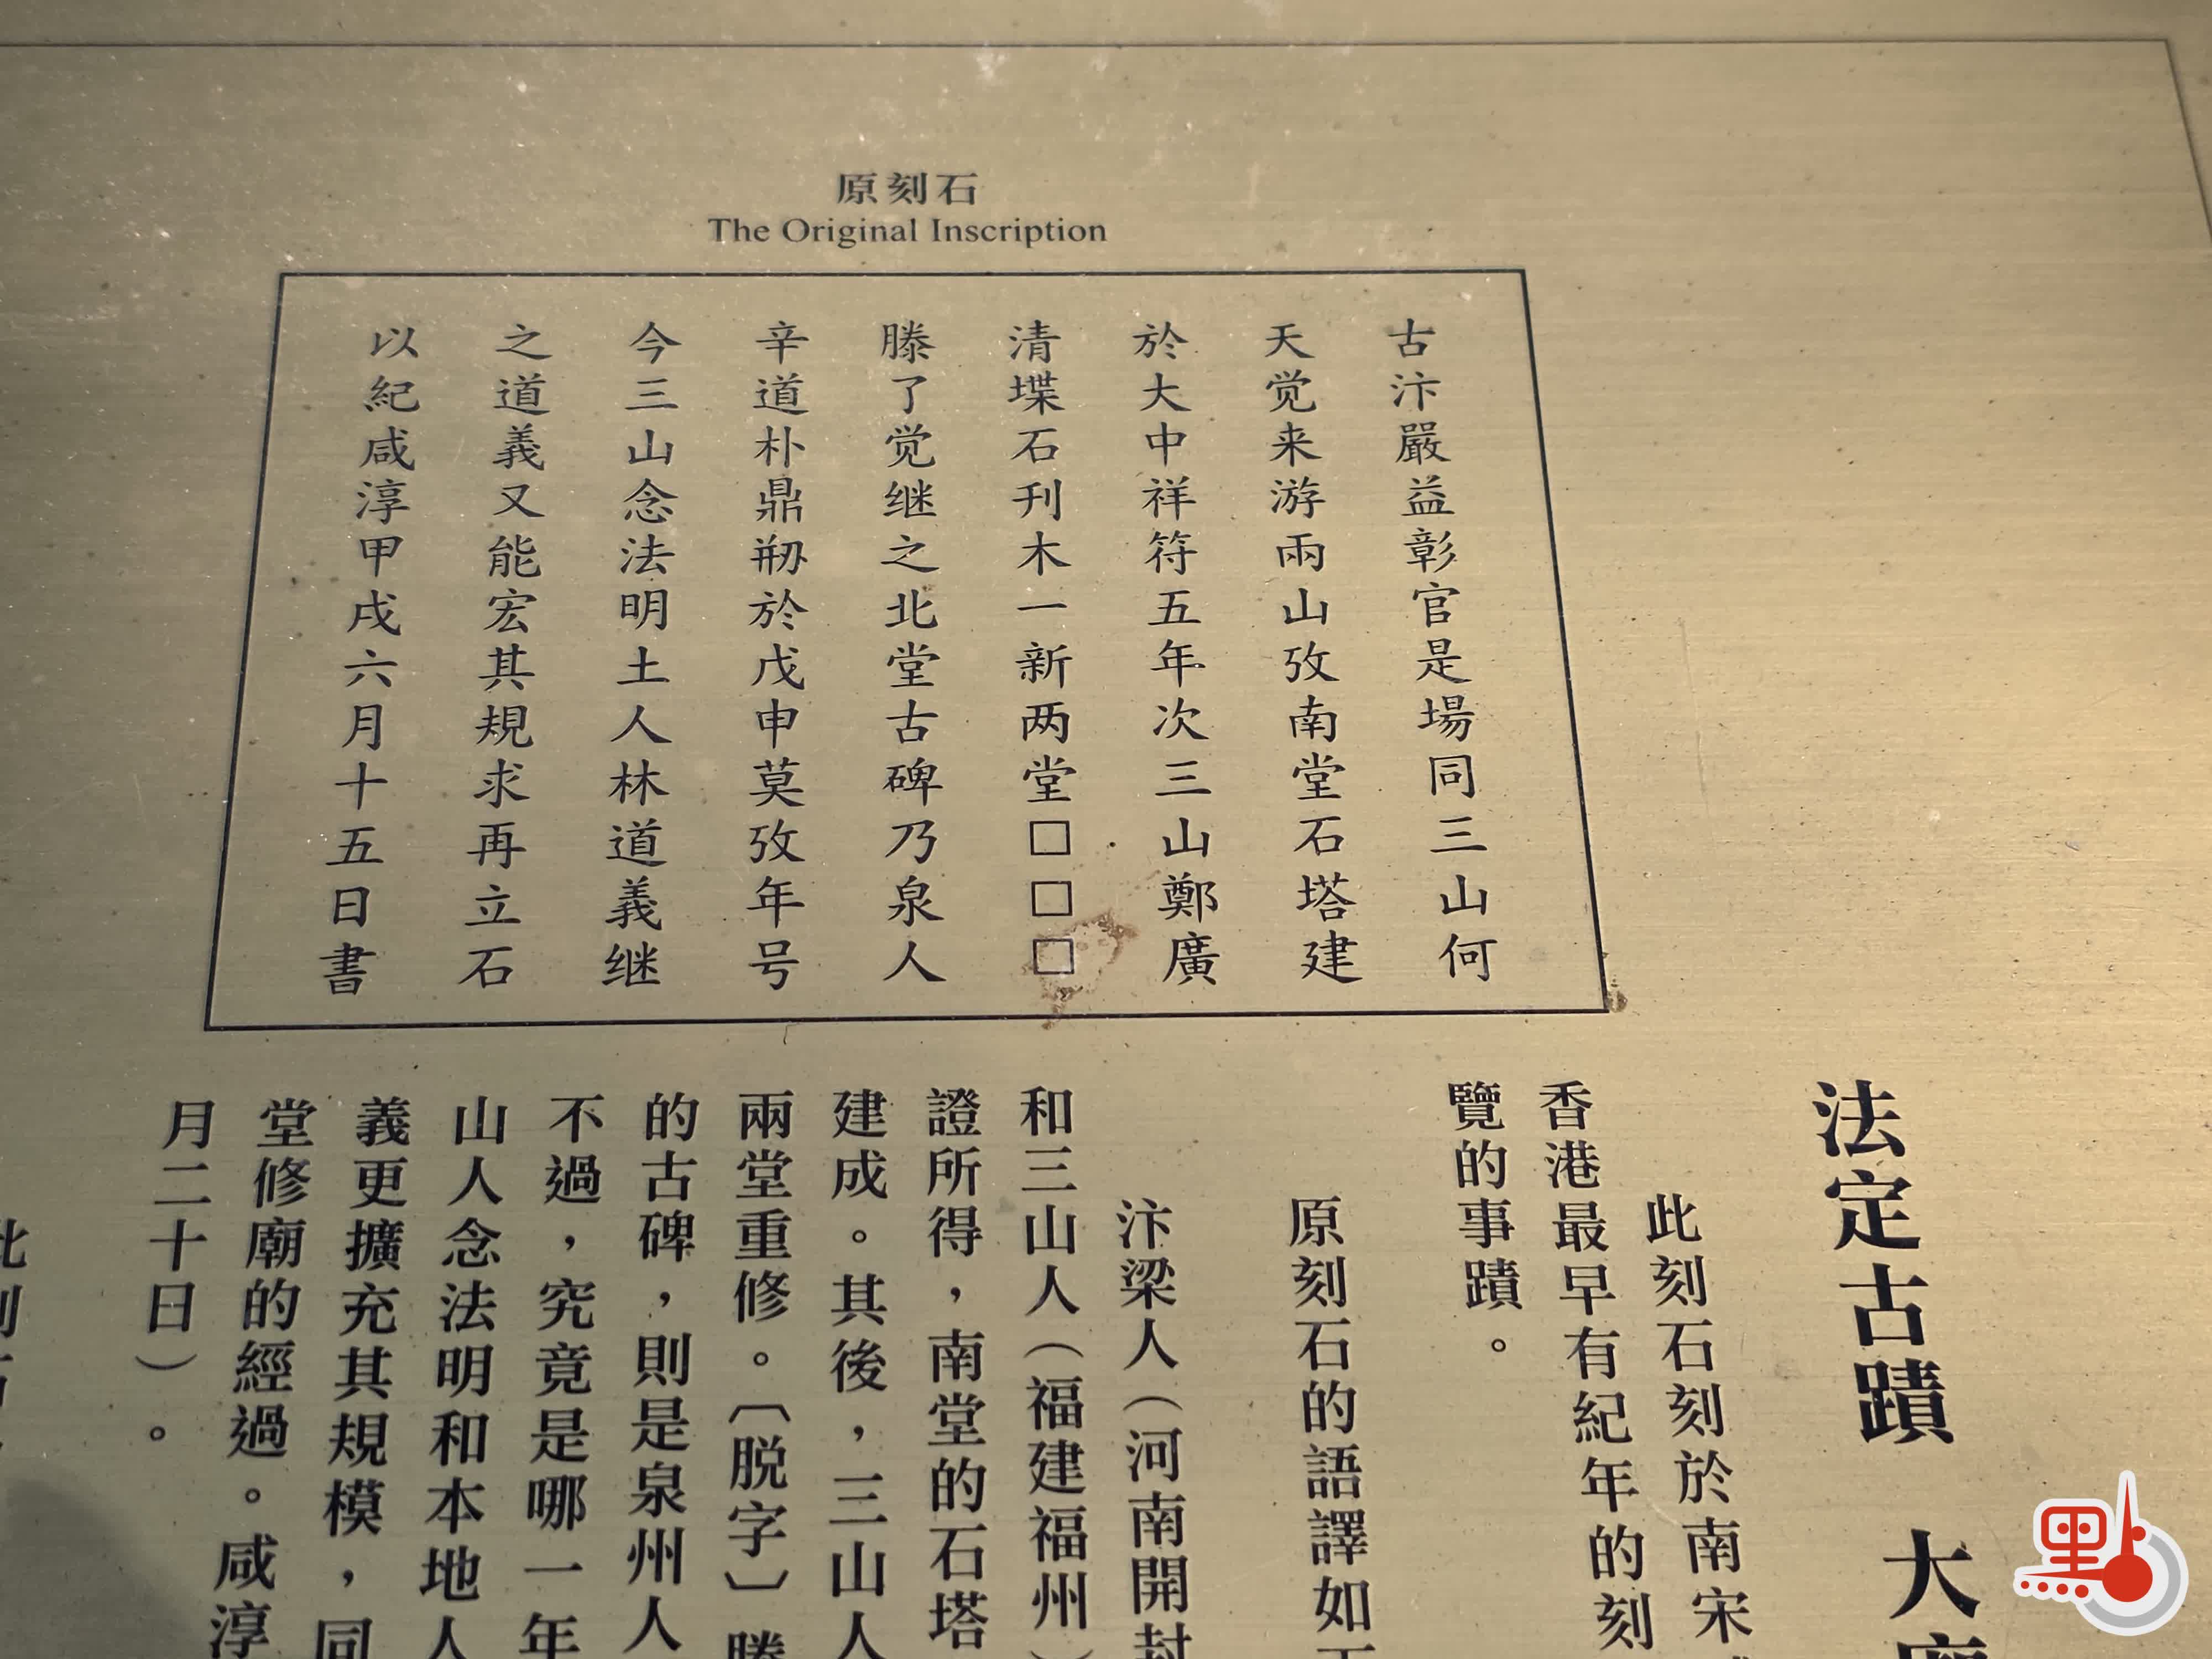 原刻石
The Original Inscription
古汴嚴益彰官是場同三山何
天觉来游兩山攷南堂石塔建
於大中祥符五年次三山鄭廣
清堞石刊木一新两堂□□□
滕了觉继之北堂古碑乃泉人
辛道朴鼎刱於戊申莫攷年号
今三山念法明土人林道義继
之道義又能宏其規求再立石
以紀咸淳甲戌六月十五日書
法定古蹟 大
此刻石刻於南宋
香港最早有紀年的刻
覽的事蹟。
原刻石的語譯如
汴梁人（河南開封
和三山人（福建福州）
證所得，南堂的石塔
建成。其後，三山人
兩堂重修。〔脱字〕
的古碑，則是泉州人
不過，究竟是哪一年
山人念法明和本地人
義更擴充其規模，同
堂修廟的經過。咸淳
月二十日）。